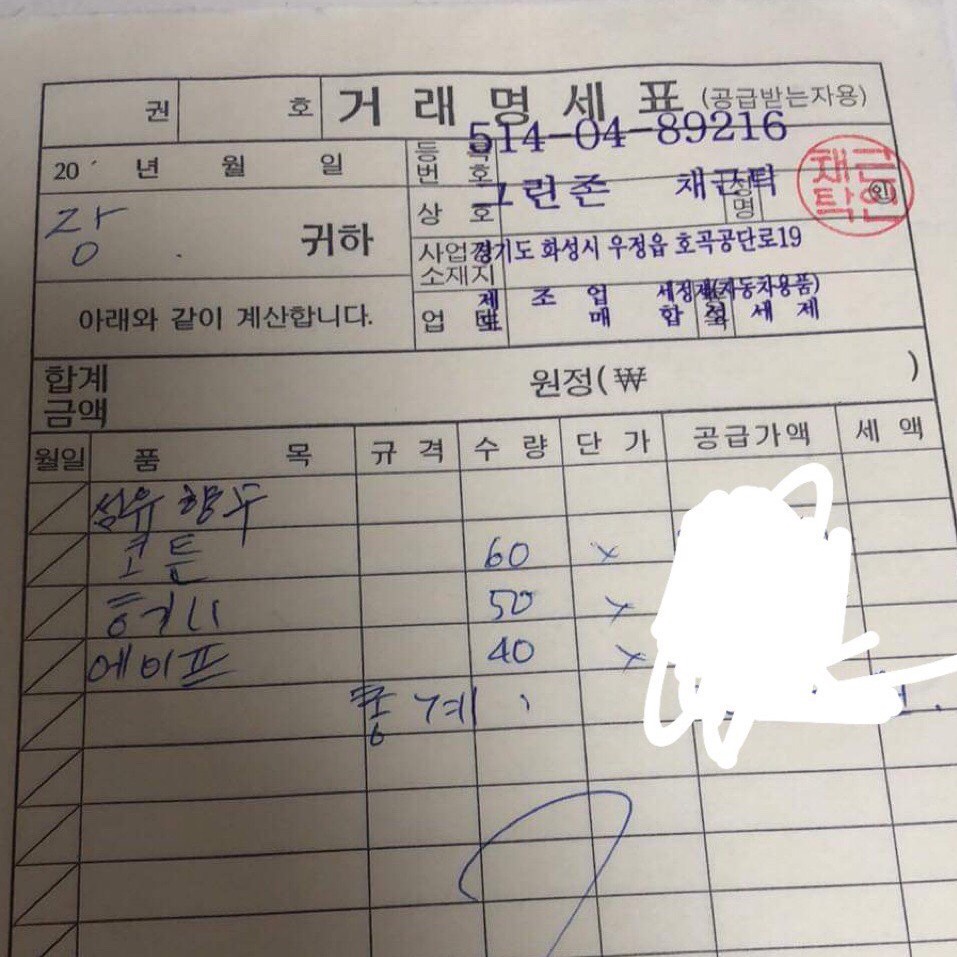 권 호 거래명세표 (공급받는자용)
등록번호 514-04-89216
20 년 월 일
상호 그린존 성명 채근탁 ㊞
채근탁인
귀하
사업장소재지 경기도 화성시 우정읍 호곡공단로19
아래와 같이 계산합니다.
업태 제조업 세정제(자동차용품)
도매 합성세제
합계금액 원정(₩ )
월일 품목 규격 수량 단가 공급가액 세액
섬유향수
코튼 60 x
50 x
에이프 40 x
총계